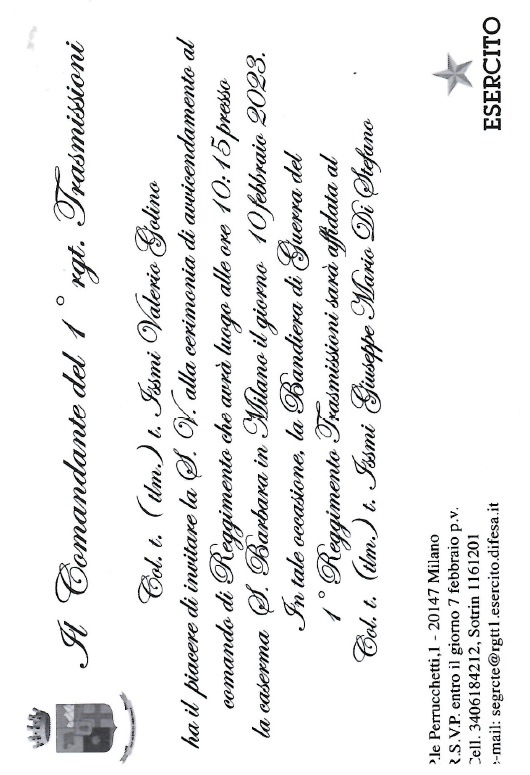 Il Comandante del 1° rgt. Trasmissioni
Col. t. (tlm.) t. Issmi Valerio Golino
ha il piacere di invitare la S. V. alla cerimonia di avvicendamento al
comando di Reggimento che avrà luogo alle ore 10:15 presso
la caserma S. Barbara in Milano il giorno 10 febbraio 2023.
In tale occasione, la Bandiera di Guerra del
1° Reggimento Trasmissioni sarà affidata al
Col. t. (tlm.) t. Issmi Giuseppe Mario Di Stefano
P.le Perrucchetti,1 - 20147 Milano
R.S.V.P. entro il giorno 7 febbraio p.v.
Cell. 3406184212, Sotrin 1161201
e-mail: segrcte@rgtt1.esercito.difesa.it
ESERCITO